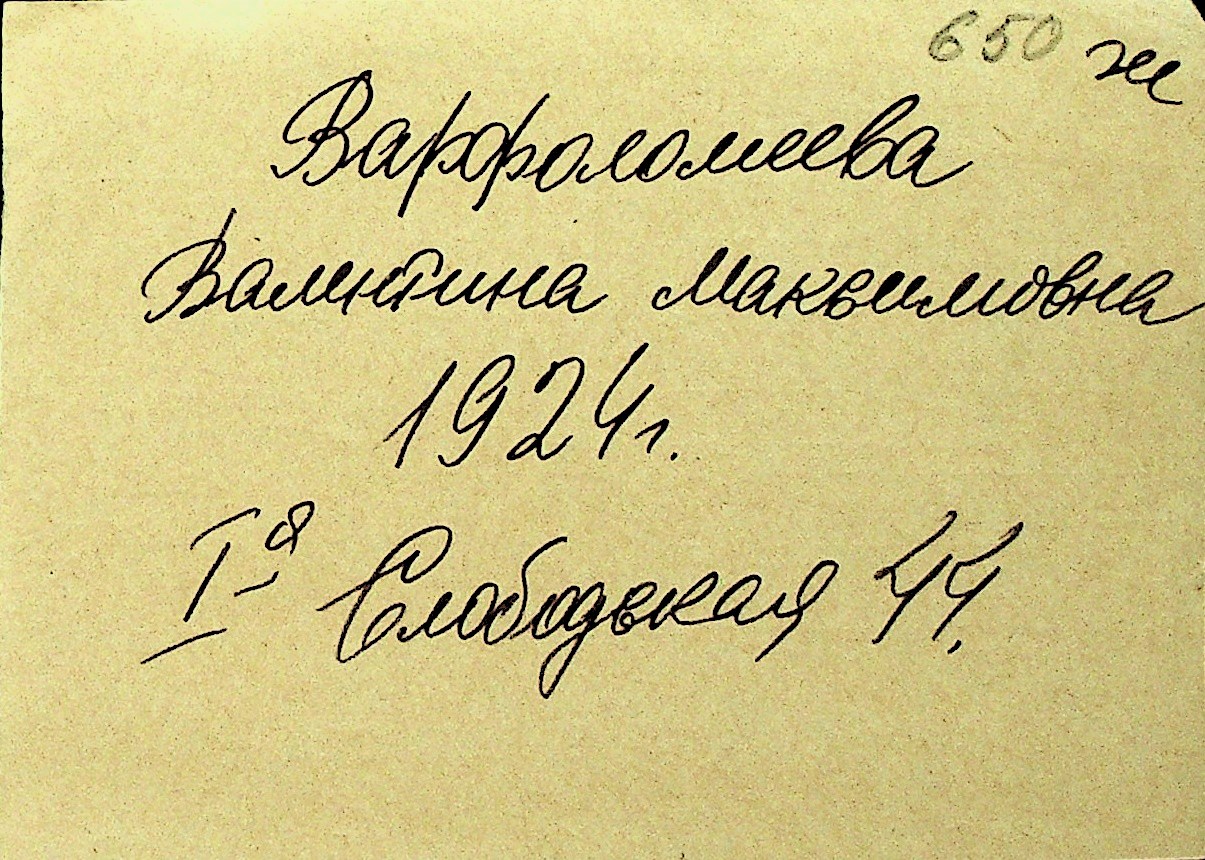 650 ж
Варфоломеева
Валентина Максимовна
1924г.
I-я Слободская 44.